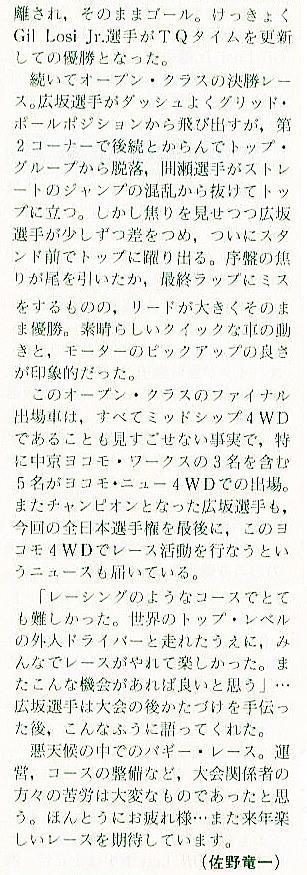 離され，そのままゴール。けっきょく
Gil Losi Jr.選手がＴＱタイムを更新
しての優勝となった。
　続いてオープン・クラスの決勝レー
ス。広坂選手がダッシュよくグリッド・
ポールポジションから飛び出すが，第
２コーナーで後続とからんでトップ・
グループから脱落，間瀬選手がストレ
ートのジャンプの混乱から抜けてトッ
プに立つ。しかし焦りを見せつつ広坂
選手が少しずつ差をつめ，ついにスタ
ンド前でトップに躍り出る。序盤の焦
りが尾を引いたか，最終ラップにミス
をするものの，リードが大きくそのま
ま優勝。素晴らしいクイックな車の動
きと，モーターのピックアップの良さ
が印象的だった。
　このオープン・クラスのファイナル
出場車は，すべてミッドシップ４ＷＤ
であることも見すごせない事実で，特
に中京ヨコモ・ワークスの３名を含む
５名がヨコモ・ニュー４ＷＤでの出場。
またチャンピオンとなった広坂選手も，
今回の全日本選手権を最後に，このヨ
コモ４ＷＤでレース活動を行なうとい
うニュースも届いている。
　「レーシングのようなコースでとて
も難しかった。世界のトップ・レベル
の外人ドライバーと走れたうえに，み
んなでレースがやれて楽しかった。ま
たこんな機会があれば良いと思う」…
広坂選手は大会の後かたづけを手伝っ
た後，こんなふうに語ってくれた。
　悪天候の中でのバギー・レース。運
営，コースの整備など，大会関係者の
方々の苦労は大変なものであったと思
う。ほんとうにお疲れ様…また来年楽
しいレースを期待しています。
（佐野竜一）